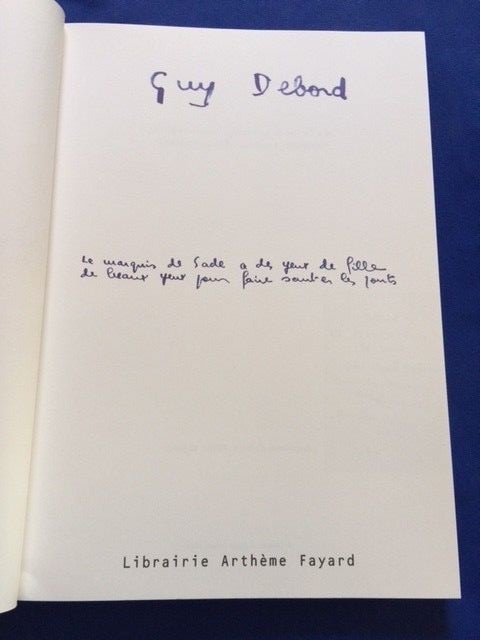 Guy Debord
Le marquis de Sade a des yeux de fille
de beaux yeux pour faire sauter les ponts
Librairie Arthème Fayard